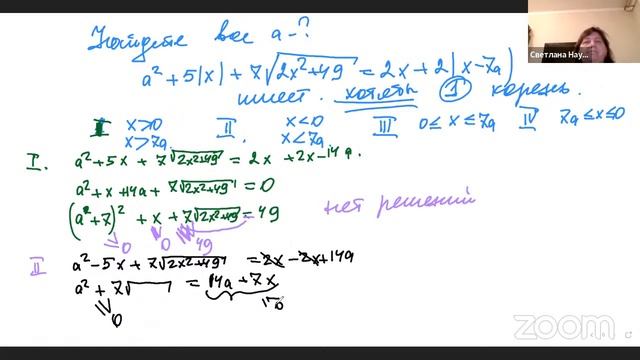 Найдите все a - ?
a² + 5|x| + 7√2x²+49 = 2x + 2|x-7a|
имеет хотябы ① корень.
I x>0 x>7a II. x<0 x<7a III 0≤x≤7a IV 7a≤x≤0
I. a² + 5x + 7√2x²+49 = 2x + 2x - 14a.
a² + x + 14a + 7√2x²+49 = 0
(a+7)² + x + 7√2x²+49 = 49
≥0 0 49
нет решений
II a² - 5x + 7√2x²+49 = 2x - 2x + 14a
a² + 7√ = 14a + 7x
≥0
Светлана Нау...
zoom